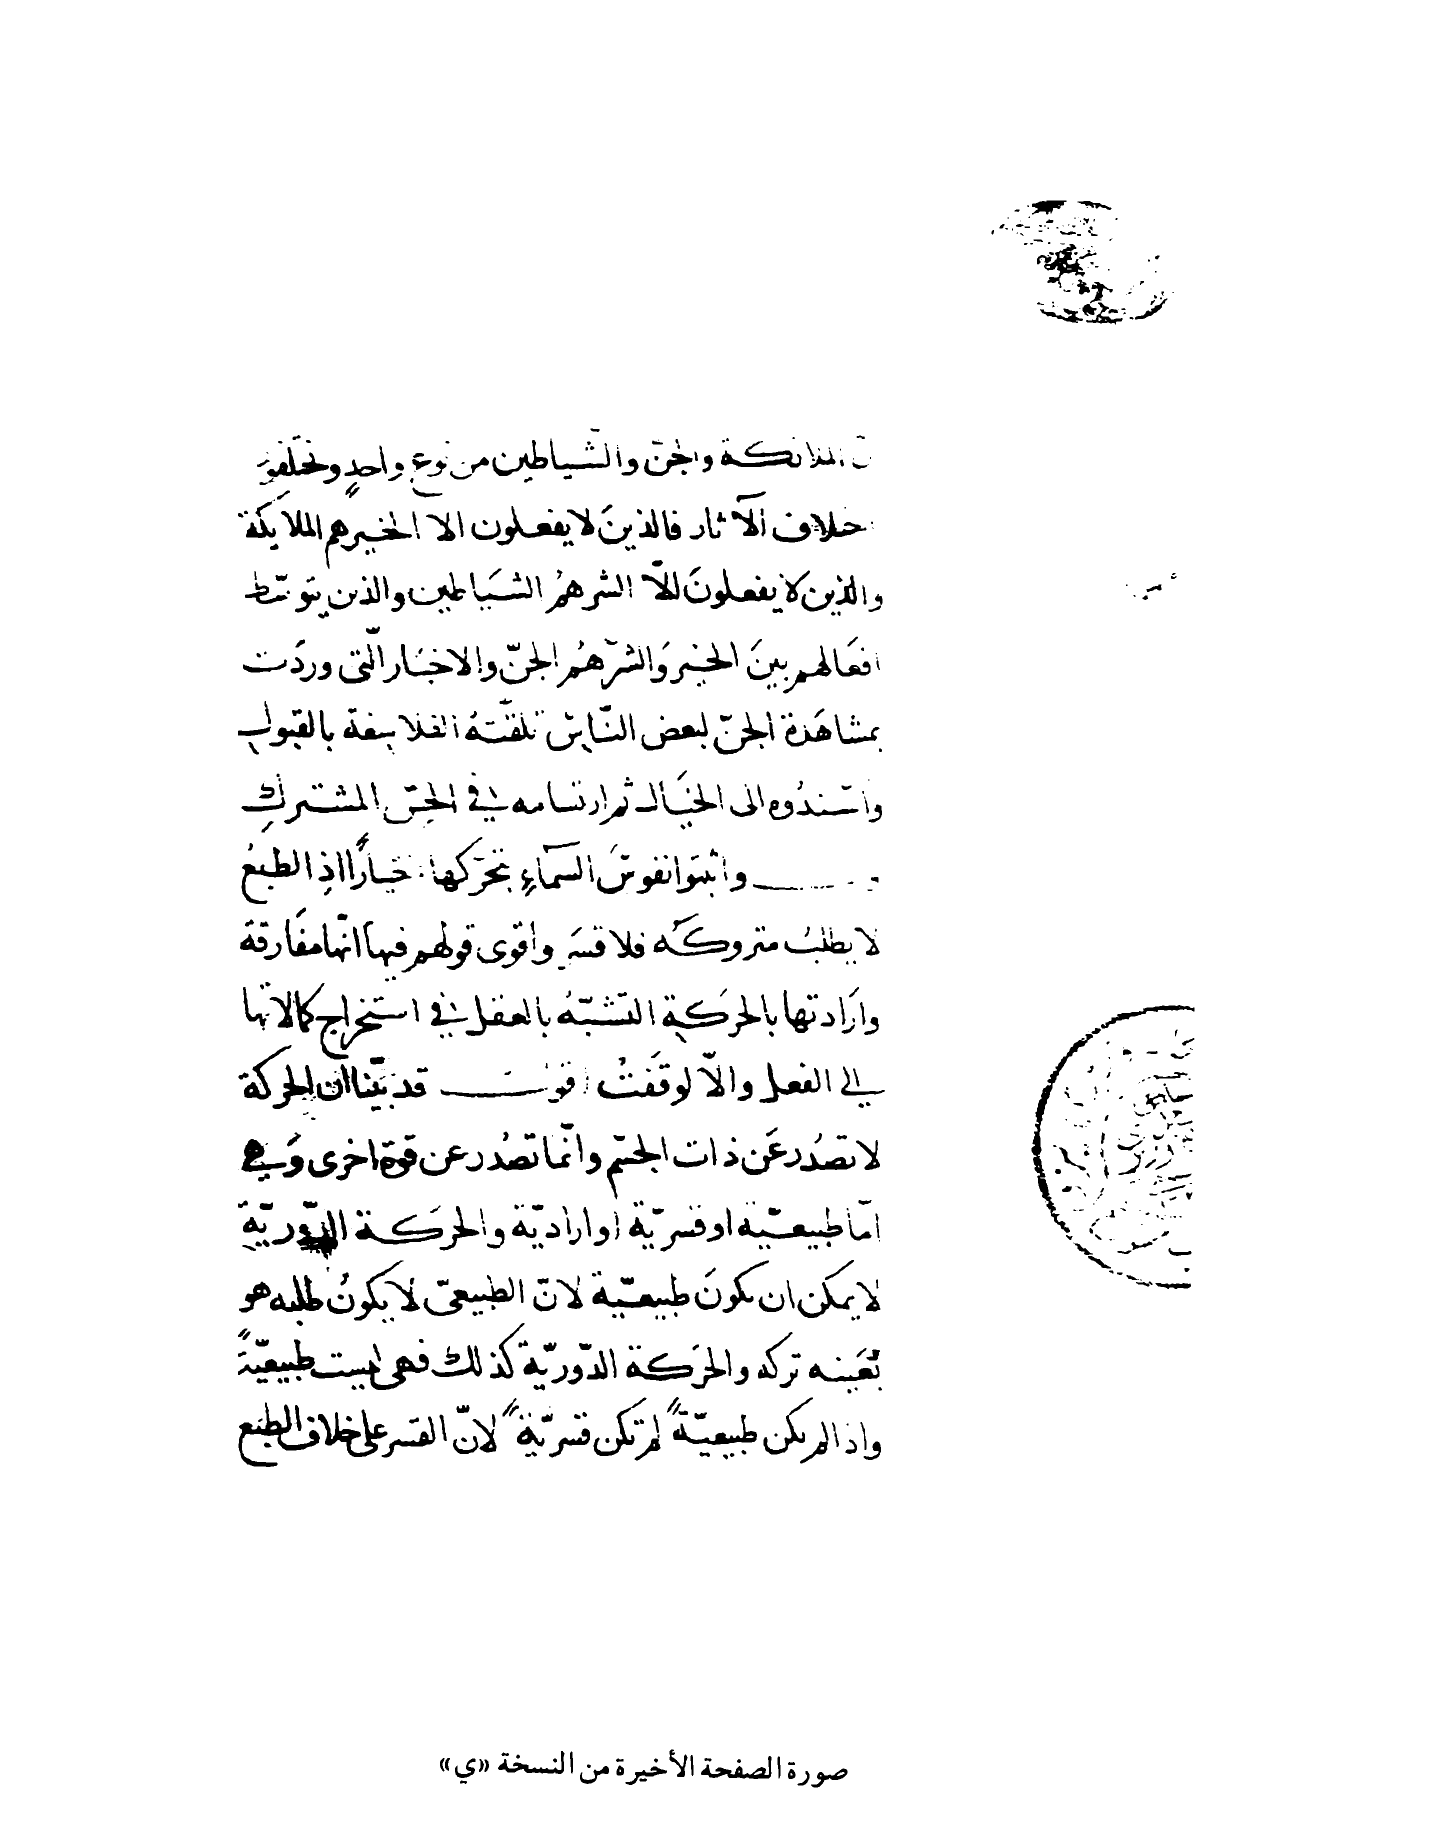 الملائكة والجنّ والشّياطين من نوع واحدٍ وتختلفو
خلاف الآثار فالذينَ لا يفعلون الا الخير هم الملايكة
والذين لا يفعلونَ الّا الشر همُ الشَياطين والذين يتوسّط
افعَالهم بينَ الخير وَالشرّ همُ الجنّ والاخبَار الّتى وردَت
بمشاهَدة الجنّ لبعض النّاس تلقّتهُ الفلاسفة بالقبول
واسْندُوه الى الخيَال ثم ارتسامه في الحسّ المشترك
واثبتوا نفوسَ السّماءِ بتحرّكها خيارًا اذِ الطبعُ
لا يطلبُ متروكَه فلا قسَر واقوى قولهم فيها انّها مفَارقة
وارَادتها بالحركَة التشبّهُ بالعقل في استخراج كمالاتها
الي الفعل والّا لوقفَتْ اقولُ قد بيّنا انّ الحركة
لا تصدُر عَن ذات الجسم وانّما تصدُر عن قوة اخرى وَهي
امّا طبيعيّة او قسريّة او اراديّة والحركَة الدّوريّة
لا يمكن ان تكونَ طبيعيّة لانّ الطبيعىّ لا يكونُ طلبه هو
بعَينه تركه والحرَكة الدّوريّة كذلك فهى ليست طبيعيّةً
واذا لم تكن طبيعيّةً لم تكن قسريّةً لانّ القسر على خلاف الطبع
صورة الصفحة الأخيرة من النسخة «ي»